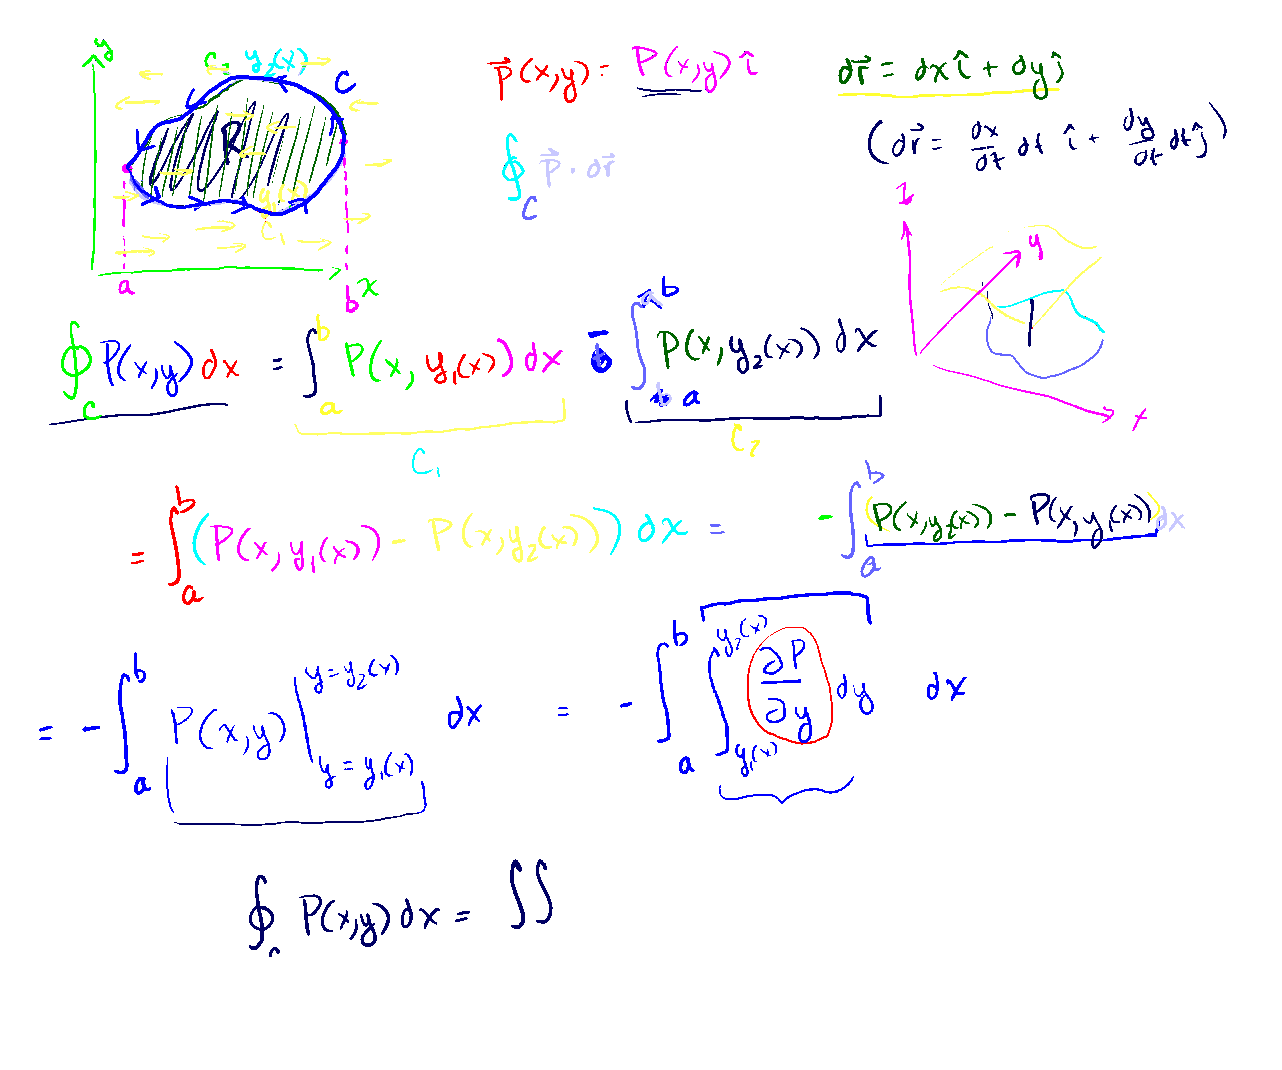 y
C₂ y₂(x)
C
R
y₁(x)
C₁
a b x
p⃗(x,y) = P(x,y) î
dr⃗ = dx î + dy ĵ
∮_C p⃗ · dr⃗
(dr⃗ = dx/dt dt î + dy/dt dt ĵ)
z
y
x
∮_C P(x,y) dx = ∫_a^b P(x, y₁(x)) dx - ∫_a^b P(x, y₂(x)) dx
C₁ C₂
= ∫_a^b (P(x, y₁(x)) - P(x, y₂(x))) dx = - ∫_a^b (P(x, y₂(x)) - P(x, y₁(x))) dx
= - ∫_a^b P(x,y) |_{y = y₁(x)}^{y = y₂(x)} dx = - ∫_a^b ∫_{y₁(x)}^{y₂(x)} ∂P/∂y dy dx
∮_c P(x,y) dx = ∬